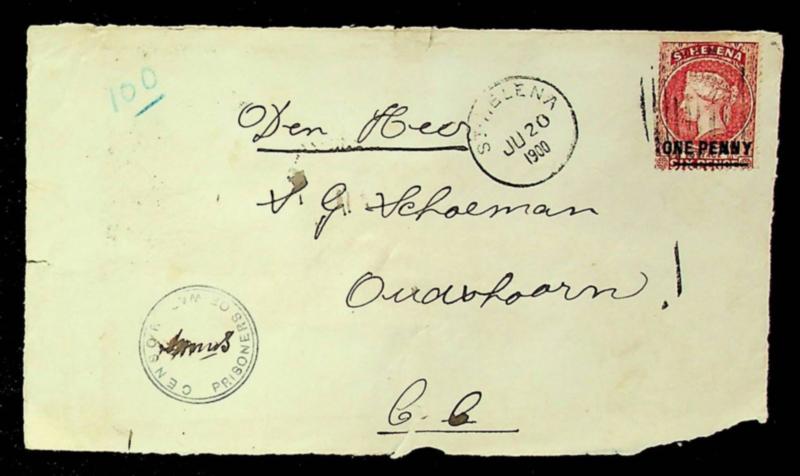 100
ST. HELENA
JU 20
1900
ST. HELENA
ONE PENNY
Den Heer
S. G. Schoeman
Oudshoorn!
C. C
CENSOR
PRISONERS OF WAR